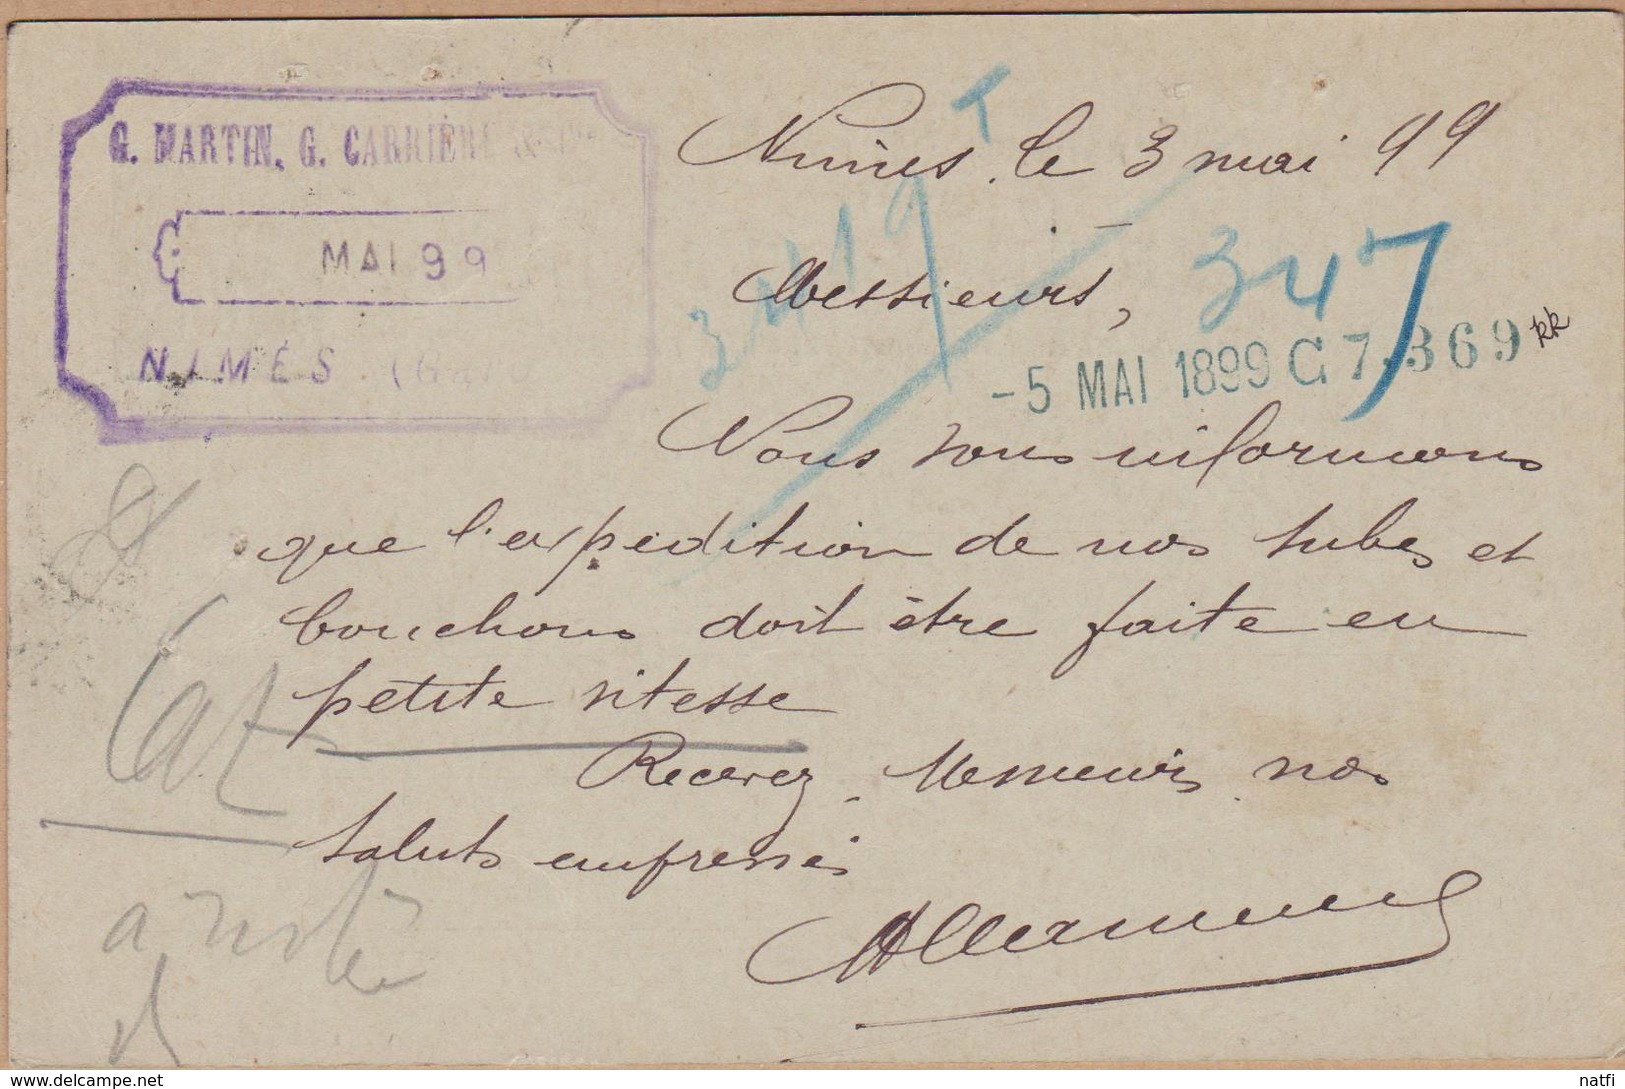 G. MARTIN, G. CARRIÈRE & Cie
MAI 99
NIMES. (Gard)
Nîmes, le 3 mai 99
Messieurs,
347
-5 MAI 1899 C 7.369
Nous vous informons
que l'expédition de nos tubes et
bouchons doit être faite en
petite vitesse
Recevez, Messieurs, nos
saluts empressés
à noter
www.delcampe.net
natfi